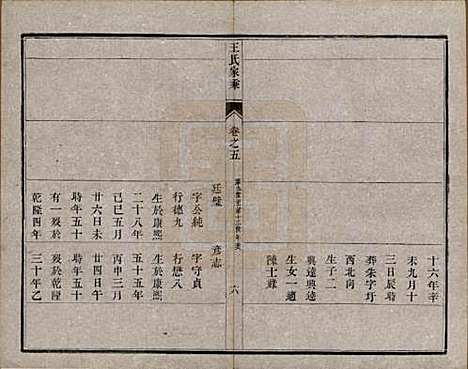 十六年辛
未九月十
三日辰時
葬朱字圩
西北向
生子二
興遠興道
生女一適
陳士
王氏家乘
卷之五
六
廷璧
字公純
行德九
生於康熙
二十八年
己巳五月
廿六日未
時年五十
有一歿於
乾隆四年
彦志
字守貞
行懋八
生於康熙
五十五年
丙申三月
廿四日午
時年五十
歿於乾隆
三十年乙